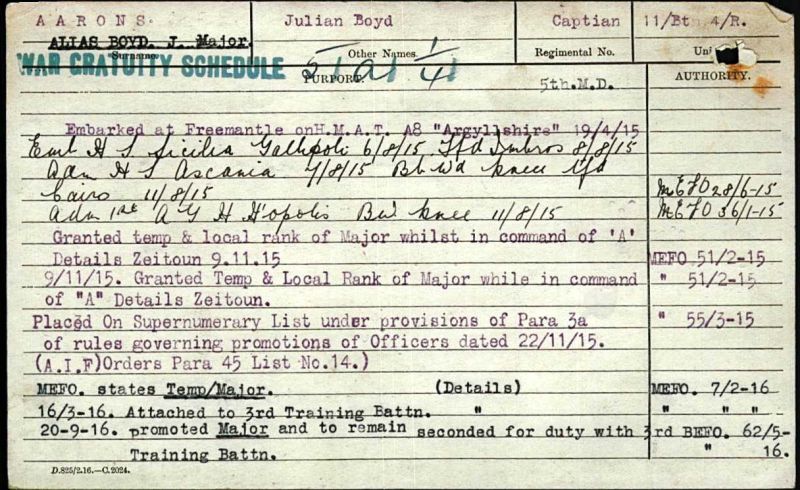 A A R O N S. Julian Boyd Captian 11/Bt 4/R.
ALIAS BOYD. J. Major.
Surname. Other Names. Regimental No. Uni
WAR GRATUITY SCHEDULE
PURPORT. AUTHORITY.
5th.M.D.
Embarked at Freemantle onH.M.A.T. A8 "Argyllshire" 19/4/15
Emb H S Sicilia Gallipoli 6/8/15 Tfd Imbros 8/8/15
Adm H S Ascania 7/8/15 Bt Wd knee tfd
Cairo 11/8/15 MEFO 28/6-15
Adm 1st A G H H'opolis Bw knee 11/8/15 MEFO 36/1-15
Granted temp & local rank of Major whilst in command of 'A'
Details Zeitoun 9.11.15 MEFO 51/2-15
9/11/15. Granted Temp & Local Rank of Major while in command " 51/2-15
of "A" Details Zeitoun.
Placed On Supernumerary List under provisions of Para 3a " 55/3-15
of rules governing promotions of Officers dated 22/11/15.
(A.I.F)Orders Para 45 List No.14.)
MEFO. states Temp/Major. (Details) MEFO. 7/2-16
16/3-16. Attached to 3rd Training Battn. " " " "
20-9-16. promoted Major and to remain seconded for duty with 3rd BEFO. 62/5-
Training Battn. " 16.
D.825/2.16.—C.2024.